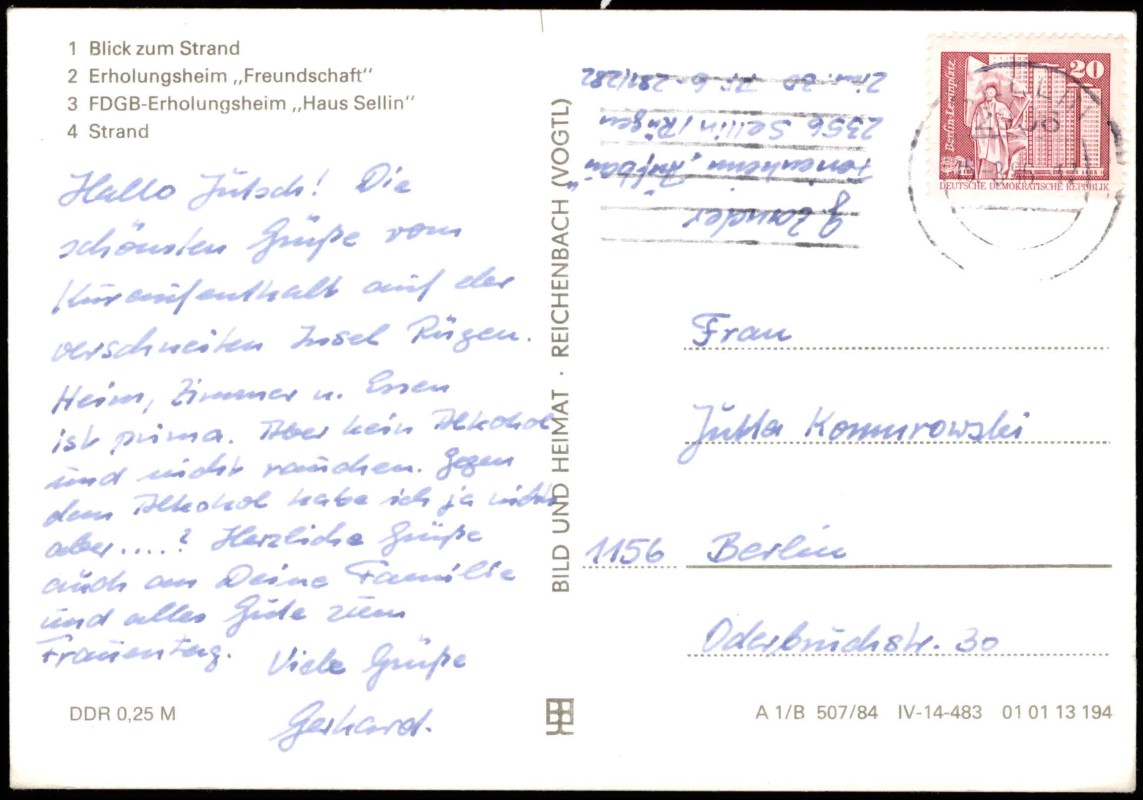 1 Blick zum Strand
2 Erholungsheim „Freundschaft“
3 FDGB-Erholungsheim „Haus Sellin“
4 Strand
Hallo Jutsch! Die
schönsten Grüße vom
Kuraufenthalt auf der
verschneiten Insel Rügen.
Heim, Zimmer u. Essen
ist prima. Aber kein Alkohol
und nicht rauchen. Gegen
den Alkohol habe ich ja nichts
aber....? Herzliche Grüße
auch an Deine Familie
und alles Gute zum
Frauentag. Viele Grüße
Gerhard.
DDR 0,25 M
BILD UND HEIMAT · REICHENBACH (VOGTL)
G. Zander
2356 Sellin/Rügen
20
Berlin-Leninplatz
DEUTSCHE DEMOKRATISCHE REPUBLIK
Frau
Jutta Komurowski
1156 Berlin
Oderbruchstr. 30
A 1/B 507/84 IV-14-483 01 01 13 194